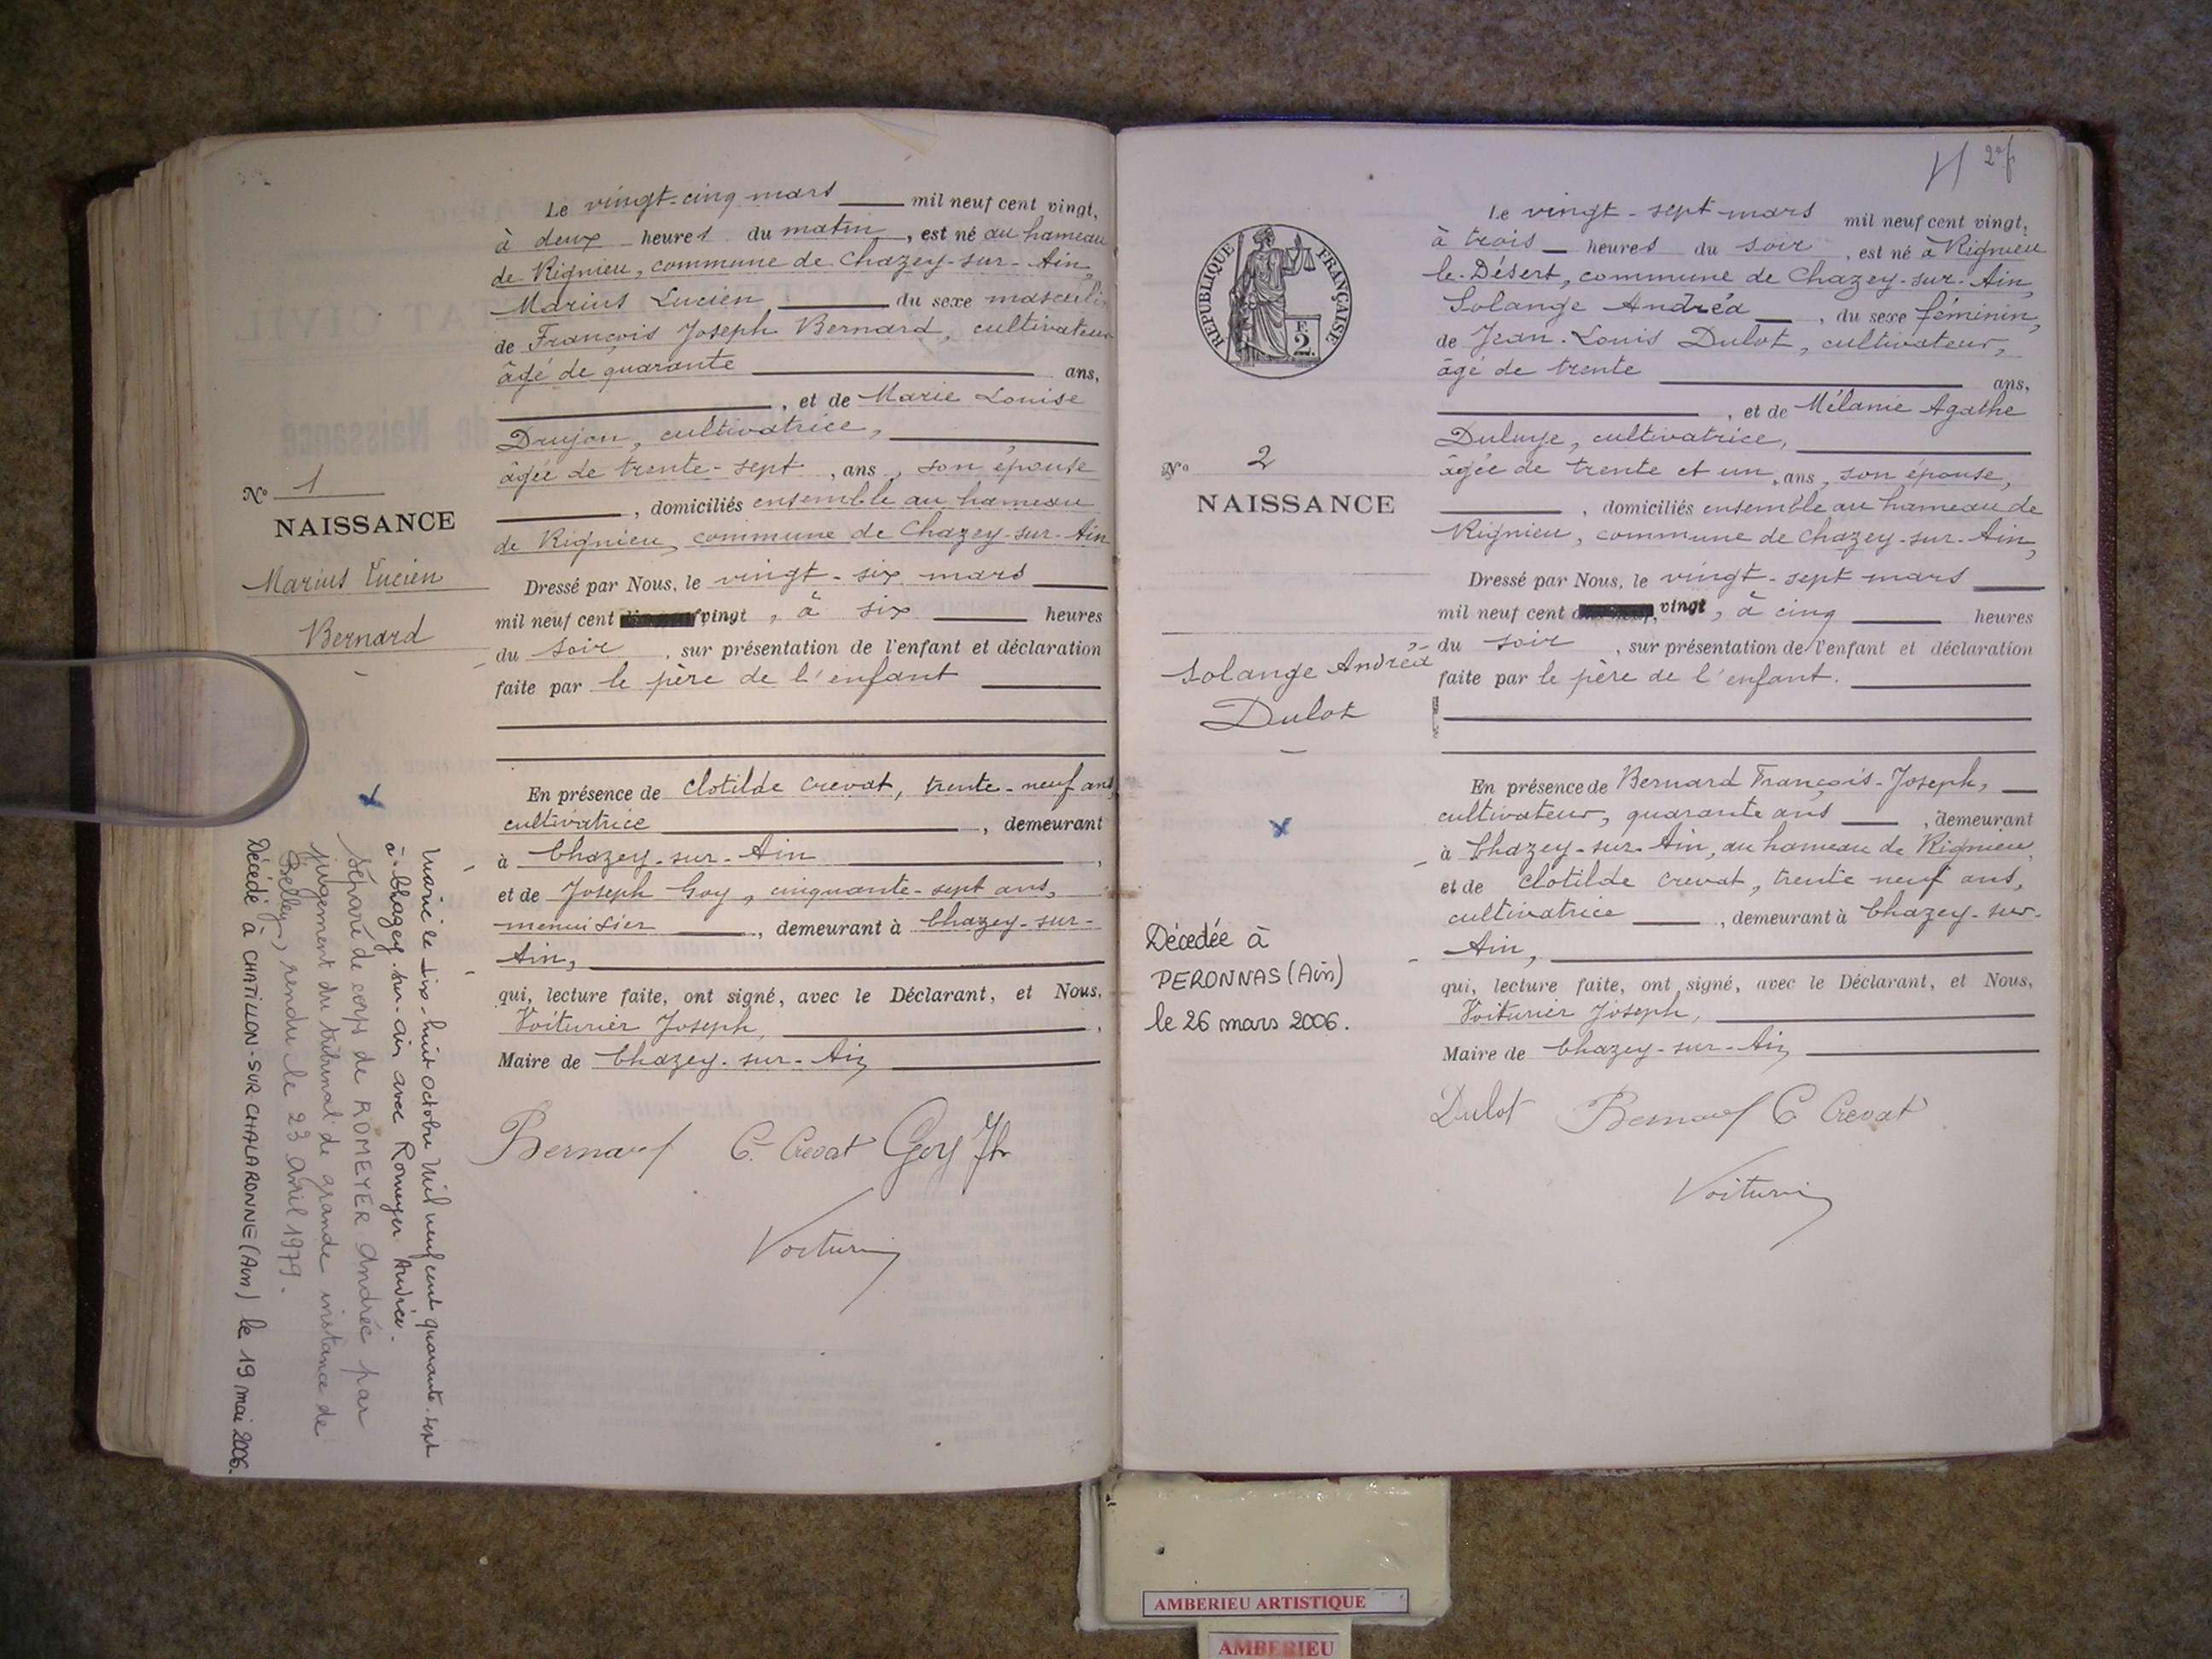 Le vingt-cinq mars mil neuf cent vingt,
à deux heures du matin, est né au hameau
de Rignieu, commune de Chazey-sur-Ain,
Marius Lucien du sexe masculin
de François Joseph Bernard, cultivateur
âgé de quarante ans,
, et de Marie Louise
Drujon, cultivatrice,
âgée de trente-sept, ans, son épouse
, domiciliés ensemble au hameau
de Rignieu, commune de Chazey-sur-Ain
Dressé par Nous, le vingt-six mars
mil neuf cent vingt, à six heures
du soir, sur présentation de l'enfant et déclaration
faite par le père de l'enfant
En présence de Clotilde Crevat, trente-neuf ans,
cultivatrice, demeurant
à Chazey-sur-Ain,
et de Joseph Goy, cinquante-sept ans,
menuisier, demeurant à Chazey-sur-
Ain,
qui, lecture faite, ont signé, avec le Déclarant, et Nous,
Voiturier Joseph,
Maire de Chazey-sur-Ain
Bernard C. Crevat Goy Jh
Voiturier
N° 1
NAISSANCE
Marius Lucien
Bernard
Marié le dix-huit octobre mil neuf cent quarante-sept
à Chazey-sur-ain avec Romeyer Andrée.
Séparé de corps de ROMEYER Andrée par
jugement du tribunal de grande instance de
Belley, rendu le 23 avril 1979.
Décédé à CHATILLON-SUR CHALARONNE (Ain) le 19 mai 2006.
RÉPUBLIQUE FRANÇAISE
2
N° 2
NAISSANCE
Solange Andréa
Dulot
Décedée à
PERONNAS (Ain)
le 26 mars 2006.
Le vingt-sept mars mil neuf cent vingt,
à trois heures du soir, est né à Rignieu
le-Désert, commune de Chazey-sur-Ain,
Solange Andréa, du sexe féminin,
de Jean-Louis Dulot, cultivateur,
âgé de trente ans,
, et de Mélanie Agathe
cultivatrice,
âgée de trente et un, ans, son épouse,
, domiciliés ensemble au hameau de
Rignieu, commune de Chazey-sur-Ain,
Dressé par Nous, le vingt-sept mars
mil neuf cent vingt, à cinq heures
du soir, sur présentation de l'enfant et déclaration
faite par le père de l'enfant.
En présence de Bernard François-Joseph,
cultivateur, quarante ans, demeurant
à Chazey-sur-Ain, au hameau de Rignieu,
et de Clotilde Crevat, trente neuf ans,
cultivatrice, demeurant à Chazey-sur-
Ain,
qui, lecture faite, ont signé, avec le Déclarant, et Nous,
Voiturier Joseph,
Maire de Chazey-sur-Ain
Dulot Bernard C Crevat
Voiturier
AMBERIEU ARTISTIQUE
AMBERIEU